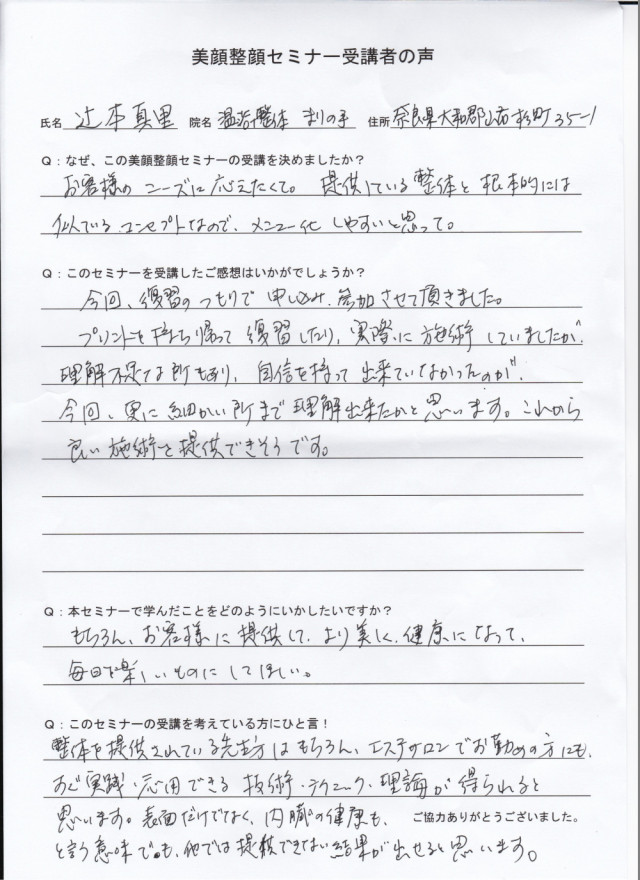 美顔整顔セミナー受講者の声
氏名 辻本真里 院名 温活整体 まりの手 住所 奈良県大和郡山市杉町35-1
Q：なぜ、この美顔整顔セミナーの受講を決めましたか？
お客様のニーズに応えたくて。提供している整体と根本的には
似ているコンセプトなので、メニュー化しやすいと思って。
Q：このセミナーを受講したご感想はいかがでしょうか？
今回、復習のつもりで申し込み、参加させて頂きました。
プリントを持ち帰って復習したり、実際に施術していましたが、
理解不足な所もあり、自信を持って出来ていなかったのが、
今回、更に細かい所まで理解出来たかと思います。これから
良い施術を提供できそうです。
Q：本セミナーで学んだことをどのようにいかしたいですか？
もちろん、お客様に提供して、より美しく、健康になって、
毎日を楽しいものにしてほしい。
Q：このセミナーの受講を考えている方にひと言！
整体を提供されている先生方はもちろん、エステサロンでお勤めの方にも、
すぐ実践・応用できる技術・テクニック・理論が得られると
思います。表面だけでなく、内臓の健康も、
ご協力ありがとうございました。
と言う意味でも、他では提供できない結果が出せると思います。